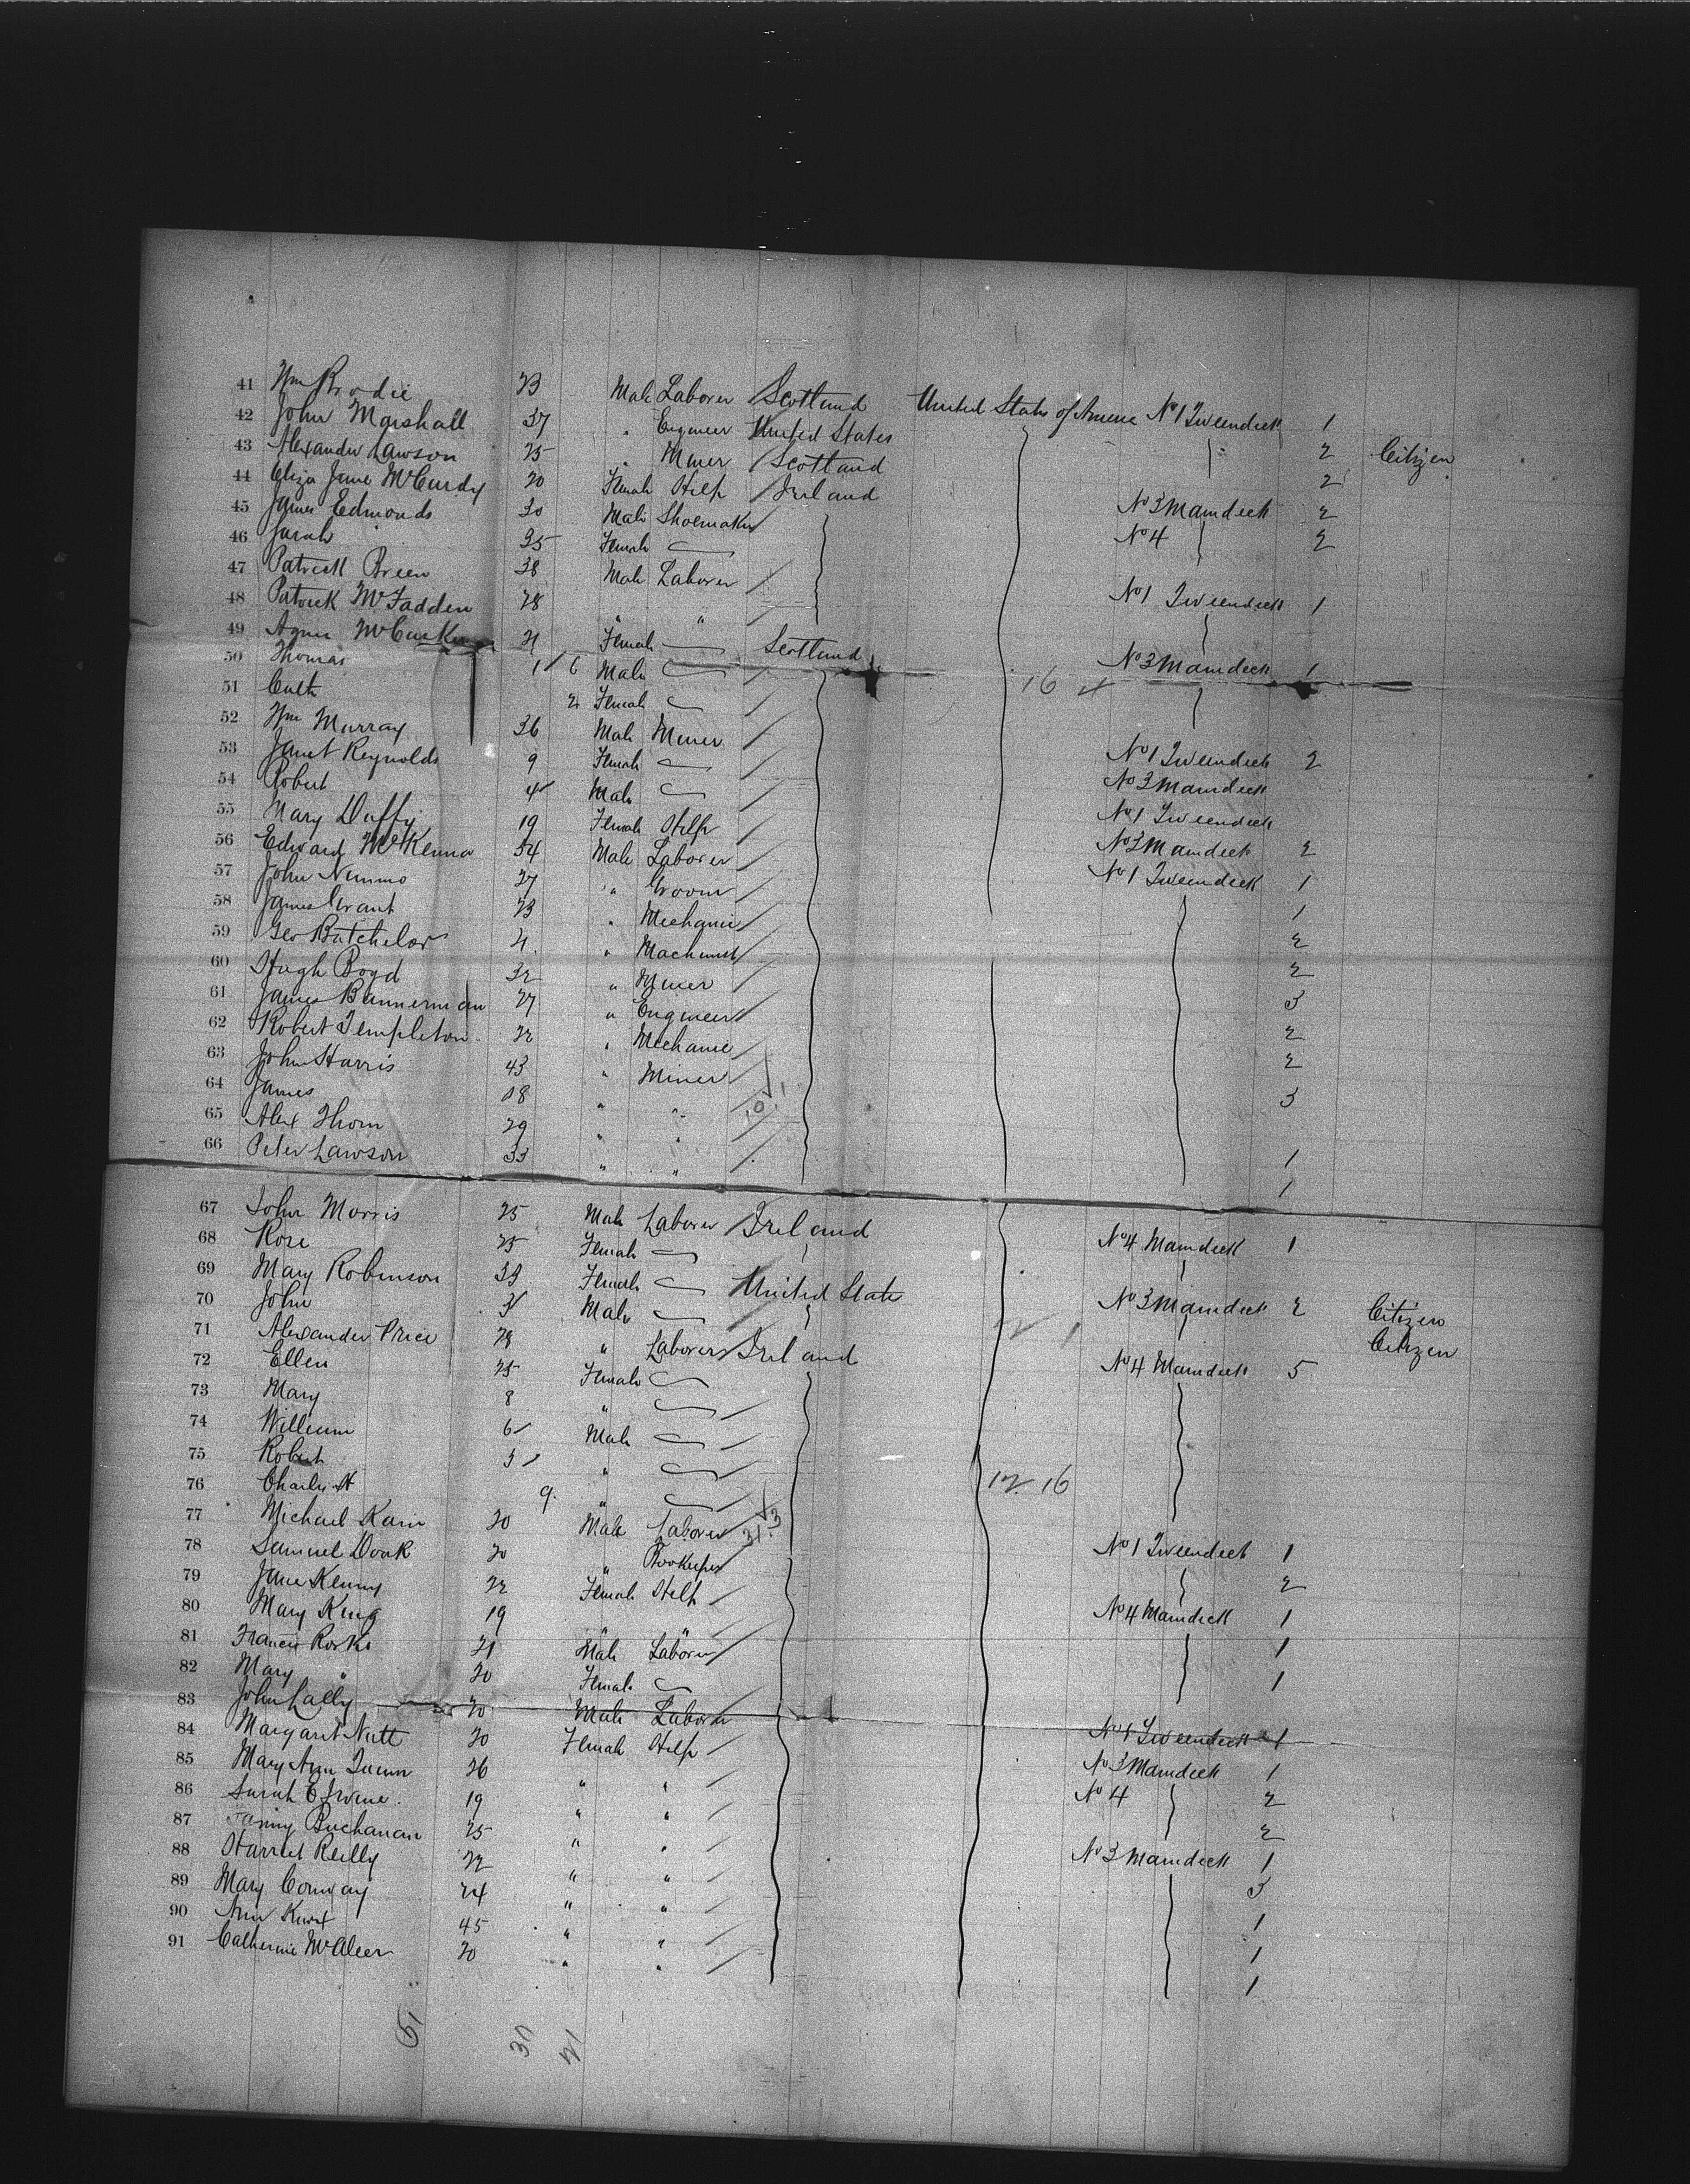 41 Wm Brodie 23 Male Laborer Scotland United States of America No 1 Tweendeck 1
42 John Marshall 37 " Engineer United States 2 Citizen
43 Alexander Lawson 25 " Miner Scotland 2
44 Eliza Jane McCurdy 20 Female Help Ireland No 3 Maindeck 2
45 James Edmonds 30 Male Shoemaker No 4 2
46 Sarah 35 Female
47 Patrick Breen 38 Male Laborer No 1 Tweendeck 1
48 Patrick McFadden 28 " "
49 Agnes McCusker 21 Female Scotland No 3 Maindeck 1
50 Thomas 1 6 Male 16 4
51 Cath 2 Female
52 Wm Murray 36 Male Miner No 1 Tweendeck 2
53 Janet Reynolds 9 Female No 3 Maindeck
54 Robert 4 Male No 1 Tweendeck
55 Mary Duffy 19 Female Help No 3 Maindeck 2
56 Edward McKenna 54 Male Laborer No 1 Tweendeck 1
57 John Nimmo 27 " Groom 1
58 James Grant 23 " Mechanic 2
59 Geo Batchelor 21 " Machinist 2
60 Hugh Boyd 32 " Miner 3
61 James Bannerman 27 " Engineer 2
62 Robert Templeton 22 " Mechanic 2
63 John Harris 43 " Miner 3
64 James 18 " "
65 Alex Thom 29 " " 1
66 Peter Lawson 33 " " 1
67 John Morris 25 Male Laborer Ireland No 4 Maindeck 1
68 Rose 25 Female
69 Mary Robinson 33 Female United States No 3 Maindeck 2 Citizen
70 John 3 Male 2 1 Citizen
71 Alexander Price 28 " Laborer Ireland No 4 Maindeck 5
72 Ellen 25 Female
73 Mary 8 "
74 William 6 Male
75 Robert 3 "
76 Charles H 9 " 12 16
77 Michael Kain 20 Male Laborer No 1 Tweendeck 1
78 Samuel Doak 20 " Bookeeper 2
79 Jane Kenny 22 Female Help No 4 Maindeck 1
80 Mary King 19 " " 1
81 Francis Rorke 21 Male Laborer 1
82 Mary " 20 Female
83 John Lally 20 Male Laborer No 1 Tweendeck 1
84 Margaret Nutt 20 Female Help No 3 Maindeck 1
85 Mary Ann Quinn 26 " " No 4 2
86 Sarah E Irvine 19 " " 2
87 Fanny Buchanan 25 " " No 3 Maindeck 1
88 Harriet Reilly 22 " " 3
89 Mary Conway 24 " " 1
90 Ann 45 " " 1
91 Catherine McAleer 20 " " 1
61 30 21